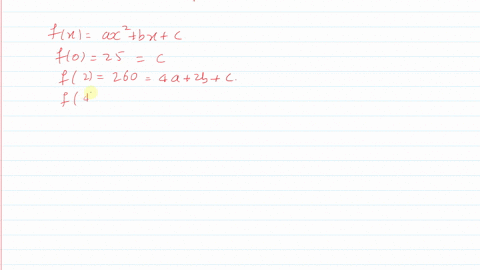 f(x) = ax²+bx+c
f(0) = 25 = c
f(2) = 260 = 4a+2b+c.
f(4